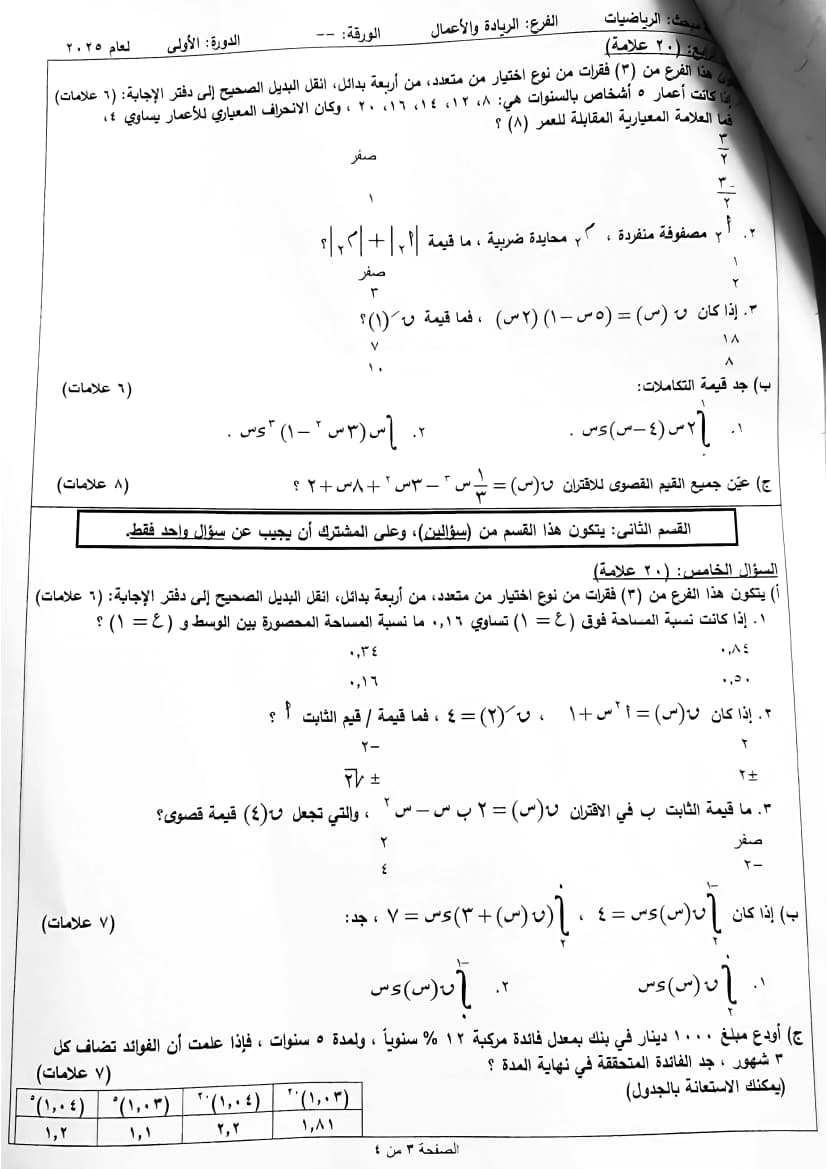 مبحث: الرياضيات الفرع: الريادة والأعمال الورقة: -- الدورة: الأولى لعام ٢٠٢٥
(٢٠ علامة)
هذا الفرع من (٣) فقرات من نوع اختيار من متعدد، من أربعة بدائل، انقل البديل الصحيح إلى دفتر الإجابة: (٦ علامات)
كانت أعمار ٥ أشخاص بالسنوات هي: ٨، ١٢، ١٤، ١٦، ٢٠ ، وكان الانحراف المعياري للأعمار يساوي ٤،
فما العلامة المعيارية المقابلة للعمر (٨) ؟
٣/٢ صفر
-٣/٢ ١
٢. أ٢ مصفوفة منفردة ، م٢ محايدة ضربية ، ما قيمة |أ٢| + |م٢|؟
١ صفر
٢ ٣
٣. إذا كان ن(س) = (٥س - ١)(٢س) ، فما قيمة نَ(١)؟
١٨ ٧
٨ ١٠
ب) جد قيمة التكاملات: (٦ علامات)
١. ∫٠^١ ٢س(٤-س)ءس . ٢. ∫س(٣س^٢ - ١)^٣ ءس .
ج) عيّن جميع القيم القصوى للاقتران ن(س) = ١/٣ س^٣ - ٣س^٢ + ٨س + ٢ ؟ (٨ علامات)
القسم الثاني: يتكون هذا القسم من (سؤالين)، وعلى المشترك أن يجيب عن سؤال واحد فقط.
السؤال الخامس: (٢٠ علامة)
أ) يتكون هذا الفرع من (٣) فقرات من نوع اختيار من متعدد، من أربعة بدائل، انقل البديل الصحيح إلى دفتر الإجابة: (٦ علامات)
١. إذا كانت نسبة المساحة فوق (ع = ١) تساوي ٠,١٦ ما نسبة المساحة المحصورة بين الوسط و (ع = ١) ؟
٠,٨٤ ٠,٣٤
٠,٥٠ ٠,١٦
٢. إذا كان ن(س) = أ^٢ س + ١ ، نَ(٢) = ٤ ، فما قيمة / قيم الثابت أ ؟
٢ -٢
±٢ ±√٢
٣. ما قيمة الثابت ب في الاقتران ن(س) = ٢ ب س - س^٢ ، والتي تجعل ن(٤) قيمة قصوى؟
صفر ٢
-٢ ٤
ب) إذا كان ∫٢^-١ ن(س)ءس = ٤ ، ∫٢^٠ (ن(س) + ٣)ءس = ٧ ، جد: (٧ علامات)
١. ∫٢^٠ ن(س)ءس ٢. ∫٠^-١ ن(س)ءس
ج) أودع مبلغ ١٠٠٠ دينار في بنك بمعدل فائدة مركبة ١٢ % سنوياً ، ولمدة ٥ سنوات ، فإذا علمت أن الفوائد تضاف كل
٣ شهور ، جد الفائدة المتحققة في نهاية المدة ؟ (٧ علامات)
(يمكنك الاستعانة بالجدول)
(١,٠٣)^٢٠ (١,٠٤)^٢٠ (١,٠٣)^٥ (١,٠٤)^٥
١,٨١ ٢,٢ ١,١ ١,٢
الصفحة ٣ من ٤